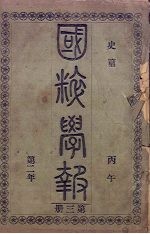 史篇
丙午
國粹學報
第二年
第三冊